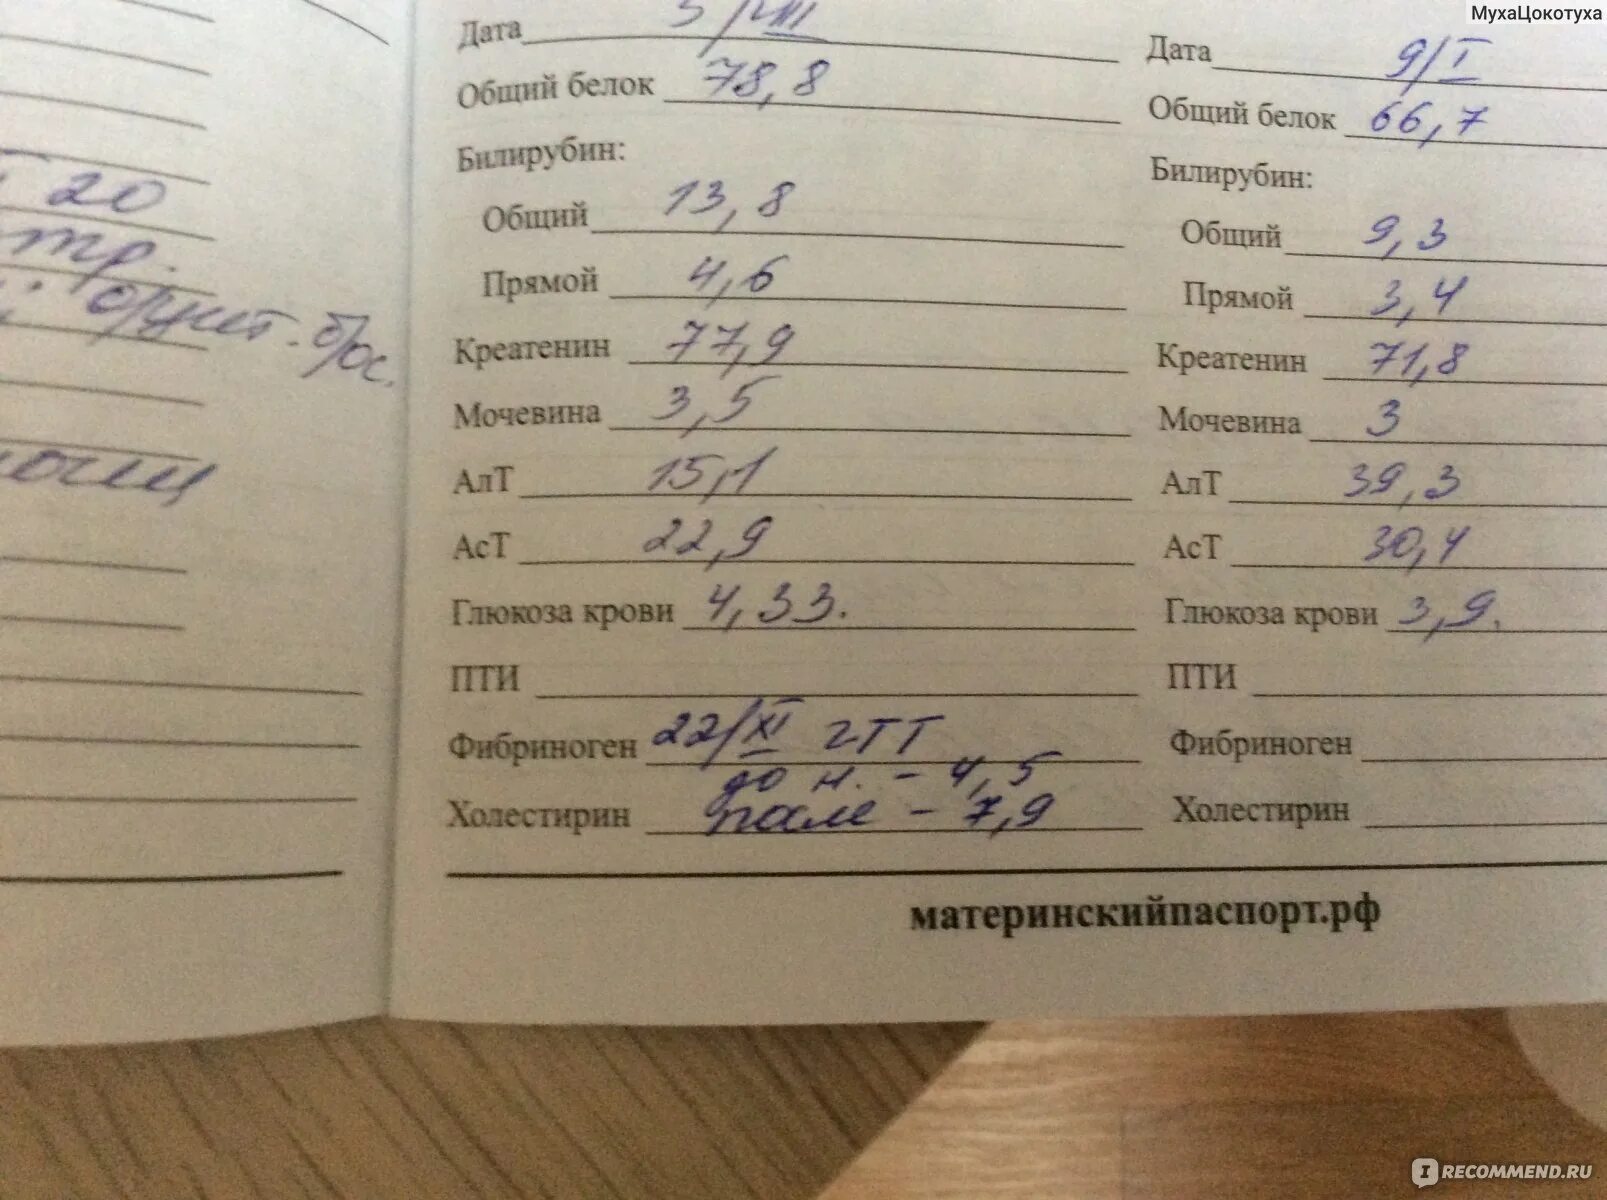 МухаЦокотуха
20
Дата 5/VIII
Общий белок 78,8
Билирубин:
Общий 13,8
Прямой 4,6
Креатенин 77,9
Мочевина 3,5
АлТ 15,1
АсТ 22,9
Глюкоза крови 4,33.
ПТИ
Фибриноген 22/XI ГТТ
до н. - 4,5
Холестирин после - 7,9
Дата 9/I
Общий белок 66,7
Билирубин:
Общий 9,3
Прямой 3,4
Креатенин 71,8
Мочевина 3
АлТ 39,3
АсТ 30,4
Глюкоза крови 3,9.
ПТИ
Фибриноген
Холестирин
материнскийпаспорт.рф
I RECOMMEND.RU